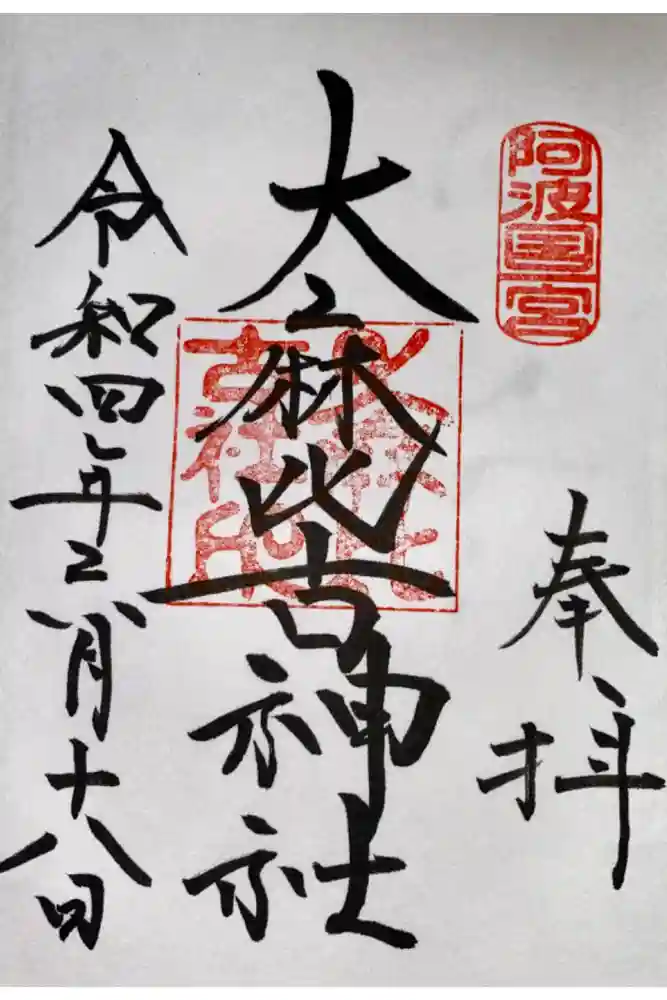 阿波国一宮
奉拝
大麻比古神社
大麻比
古社印
令和四年六月十八日